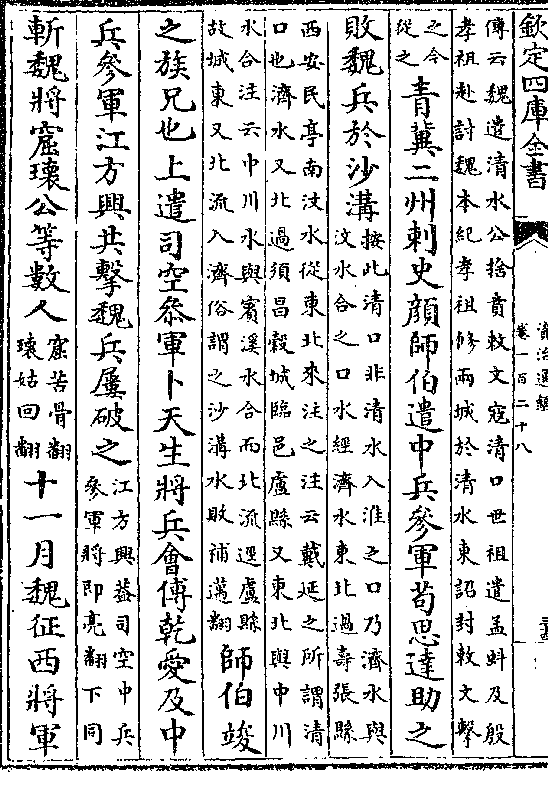 欽定四庫全書
資治通鑑
卷一百二十八
傳云魏遣清水公捨賁敕文寇清口世祖遣孟蚪及殷
孝祖赴討魏本紀孝祖修兩城於清水東詔封敕文擊
之今
從之
青冀二州刺史顔師伯遣中兵參軍苟思達助之
敗魏兵於沙溝
按此清口非清水入淮之口乃濟水與
汶水合之口水經濟水東北過壽張縣
西安民亭南汶水從東北來注之注云戴延之所謂清
口也濟水又北過須昌穀城臨邑盧縣又東北與中川
水合注云中川水與賓溪水合而北流逕盧縣
故城東又北流入濟俗謂之沙溝水敗補邁翻
師伯竣
之族兄也上遣司空叅軍卜天生將兵會傅乾愛及中
兵參軍江方興共擊魏兵屢破之
江方興葢司空中兵
參軍將即亮翻下同
斬魏將窟瓌公等數人
窟苦骨翻
瓌姑回翻
十一月魏征西將軍